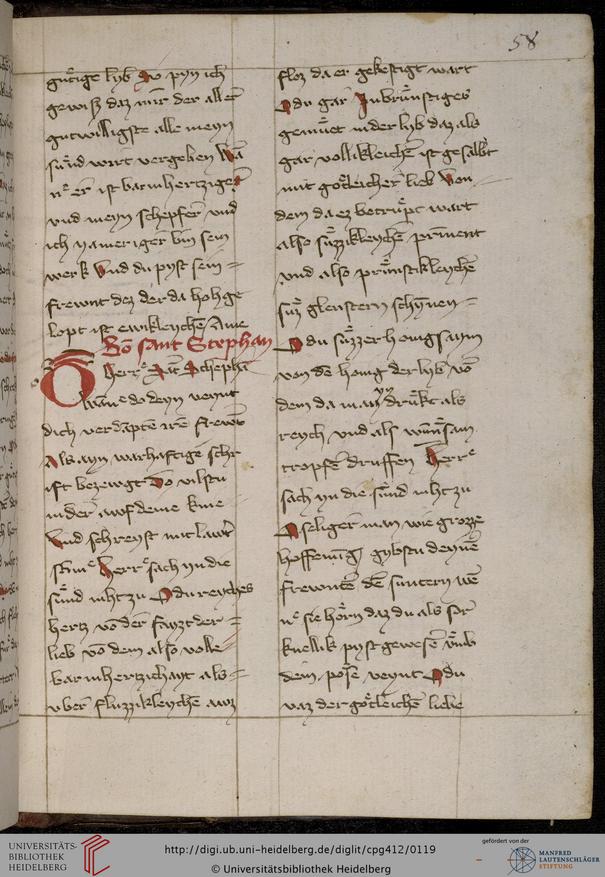 58
gutige lyb So pyn ich
gewisz daz mir der aller
gutwilligste alle meyn
sund wirt vergeben Wa
nne er ist barmhertziger
vnd meyn schepfer vnd
ich nameriger bin sein
werk Vnd du pyst sein
frewnt dez der da hohge
lopt ist ewikleychen Ame
Von sant Stephan
O herre sant Stepha
Wanne do deyn veynt
dich verdapten ire frewnt
Als ayn warhaftige schr
ift bezewgt Do vilstu
nider awf deine knie
Vnd schreyst mit lawt
stime herre sach yn die
sund niht zu O du reyches
hertz von dem fayzt der
lieb von dem also volle
barmhertzichayt als
vber fluzzikleychen awz
floz da er gekestigt wart
O du gar Inbrunstiges
gemuet in der lyb daz als
gar vollikleichen ist gesalbt
mit gotleicher lieb Von
dem da ez betrupt wart
also suzzikleychen prinnent
vnd also prunstikleychen
suz glenstern scheynen
O du suzzer honigsaym
von dem honig der lyb von
dem da man yn drukt als
reych vnd als wunnsam
tropfen druffen herre
sach yn die sund niht zu
O seliger man wie grozze
hoffenung gybstu deynen
frewnten den suntern wen
ne sie horn daz du als sor
knellik pyst gewesen vmb
dein posen veynt O du
vaz der gotleichen liebe
UNIVERSITÄTS-
BIBLIOTHEK
HEIDELBERG
http://digi.ub.uni-heidelberg.de/diglit/cpg412/0119
© Universitätsbibliothek Heidelberg
gefördert von der
MANFRED
LAUTENSCHLÄGER
STIFTUNG